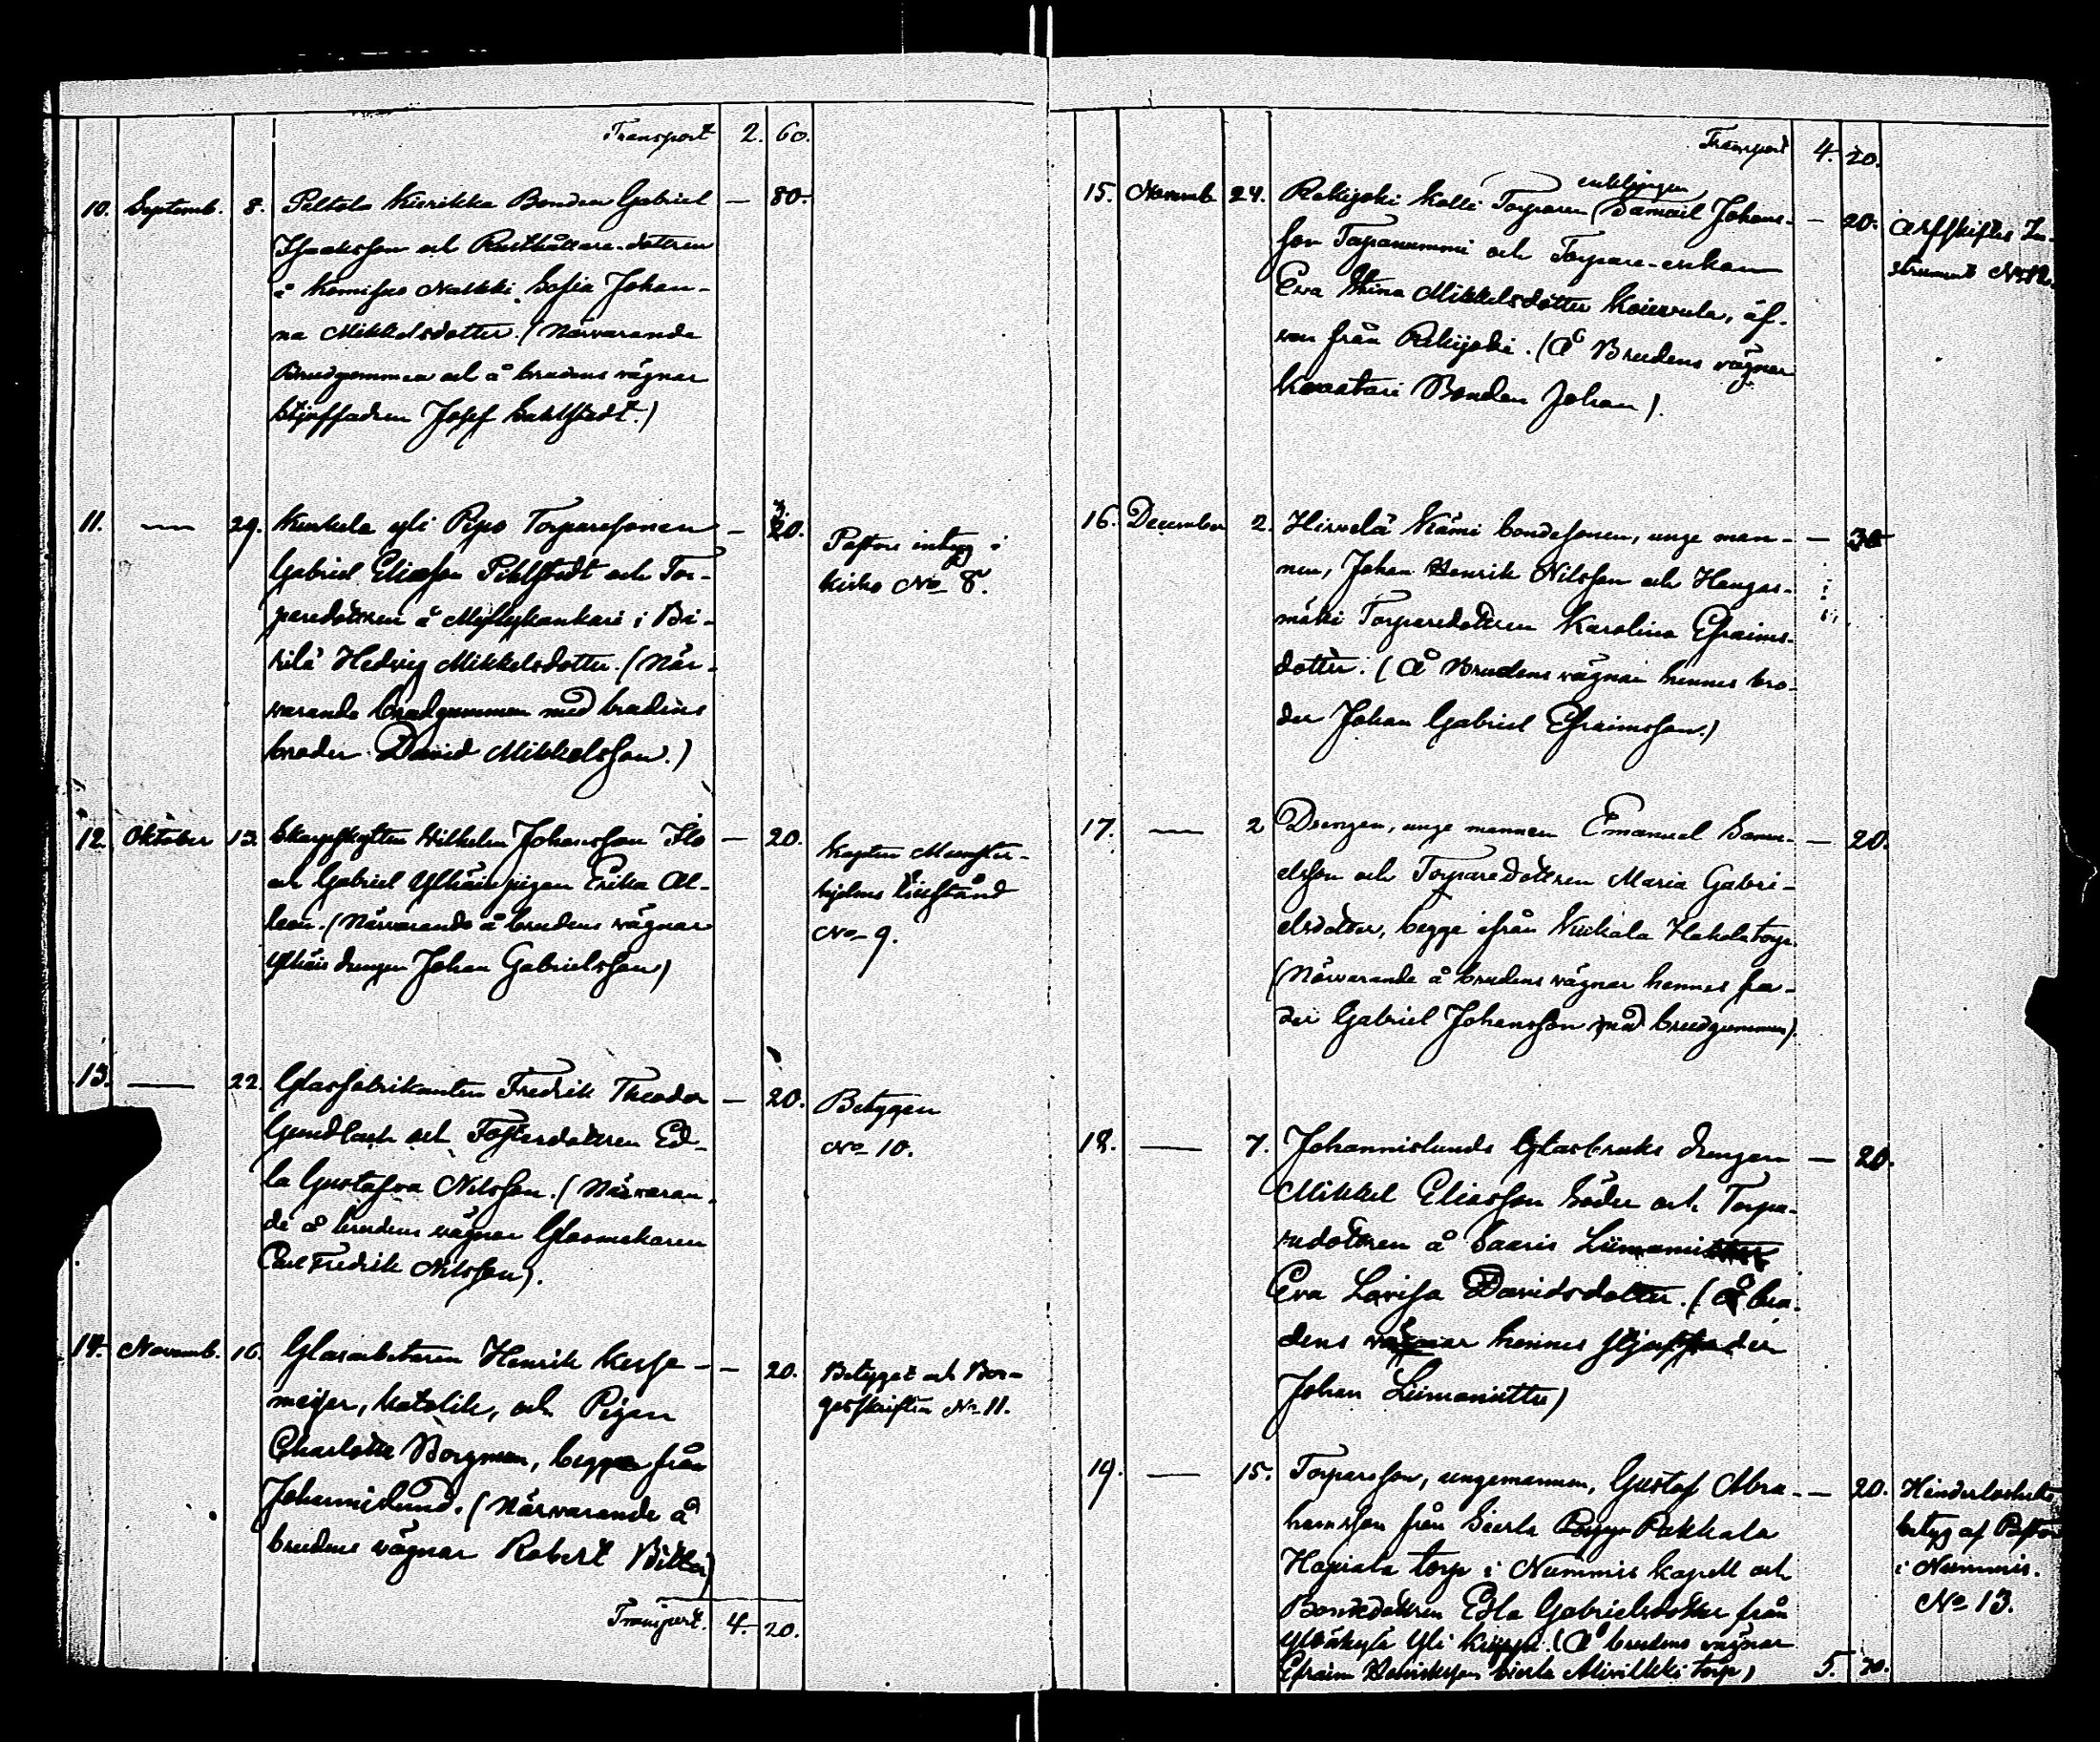 Transport 2. 60.
10. Septemb. 8. Peltola Kierikka Bonden Gabriel — 80.
Isaaksson och Rusthållare-dottren
i Komisuo Naukki Sofia Johan-
na Mikkelsdotter. (Närvarande
Brudgummen och å brudens vägnar
Stjuffadren Josef Sahlstedt.)
11. — 29. Kurkela yli Rypo Torparesonen — 20.
Gabriel Eliasson Pihlstedt och Tor-
paredottren å Myllykankare i Bi-
rilä Hedvig Mikkelsdotter. (När-
varande brudgummen med brudens
broder David Mikkelsson.)
Pastors intyg i
Kisko No 8.
12. Oktober 13. Skarpskytten Wilhelm Johansson Ilo — 20.
och Gabriel Ylhäis pigan Erika Al-
lean. (Närvarande å brudens vägnar
Ylhäis drengen Johan Gabrielsson)
Kapten Munster-
hjelms tillstånd
No 9.
13. — 22. Glasfabrikanten Fredrik Theodor — 20.
Gundlach och Fosterdottren Ed-
la Gustafva Nilsson. (Närvaran-
de å brudens vägnar Glasmakaren
Carl Fredrik Nilsson).
Betygen
No 10.
14. Novemb. 16. Glasarbetaren Henrik Kesse- — 20.
meijer, katolik, och Pigan
Charlotta Borgman, begge från
Johannislund. (Närvarande å
brudens vägnar Robert Bitter)
Betyget och Bor-
gesskriften No 11.
Transport. 4. 20.
Transport 4. 20.
enklingen
15. Novemb. 24. Rekijoki Kolli Torparen Samuel Johans- — 20.
son Tapanummi och Torpare-enkan
Eva Stina Mikkelsdotter Koivula, äf-
ven från Rekijoki. (Å Brudens vägnar
Kavatari Bonden Johan).
Arfskiftes In-
strument No 12.
16. December 2. Hirvelä Kämi bondesonen, unge man- —
nen, Johan Henrik Nilsson och Hangas-
mäki Torparedottren Karolina Efraims-
dotter. (Å Brudens vägnar hennes bro-
der Johan Gabriel Efraimsson.)
17. — 2 Drengen, unge mannen Emanuel Samu- — 20.
elsson och Torparedottren Maria Gabri-
elsdotter, begge ifrån Nuikala Hakola torp.
(Närvarande å brudens vägnar hennes fa-
der Gabriel Johansson med brudgummen).
18. — 7. Johannislunds Glasbruks drengen — 20.
Mikkel Eliasson Söder och Torpa-
redottren å Saaris Liimamitttu
Eva Lovisa Davidsdotter. (Å bru-
dens vägnar hennes stjuffader
Johan Liimanittu)
19. — 15. Torpareson, ungemannen, Gustaf Abra- — 20.
hamsson från Sierla Pakkala
Hapiala torp i Nummis Kapell och
Bondedottren Edla Gabrielsdotter från
Ylökylä Yli Kyyppi. (Å brudens vägnar
Efraim Henriksson Sierla torp)
Hinderlöshets
betyg af Pastor
i Nummis.
No 13.
5.